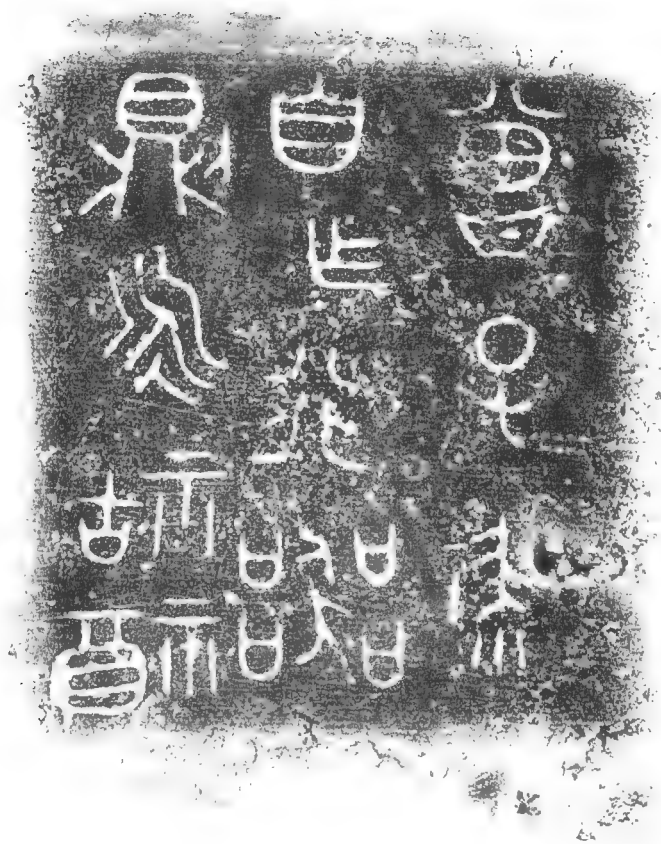 曾子
自乍行器
則永祜福